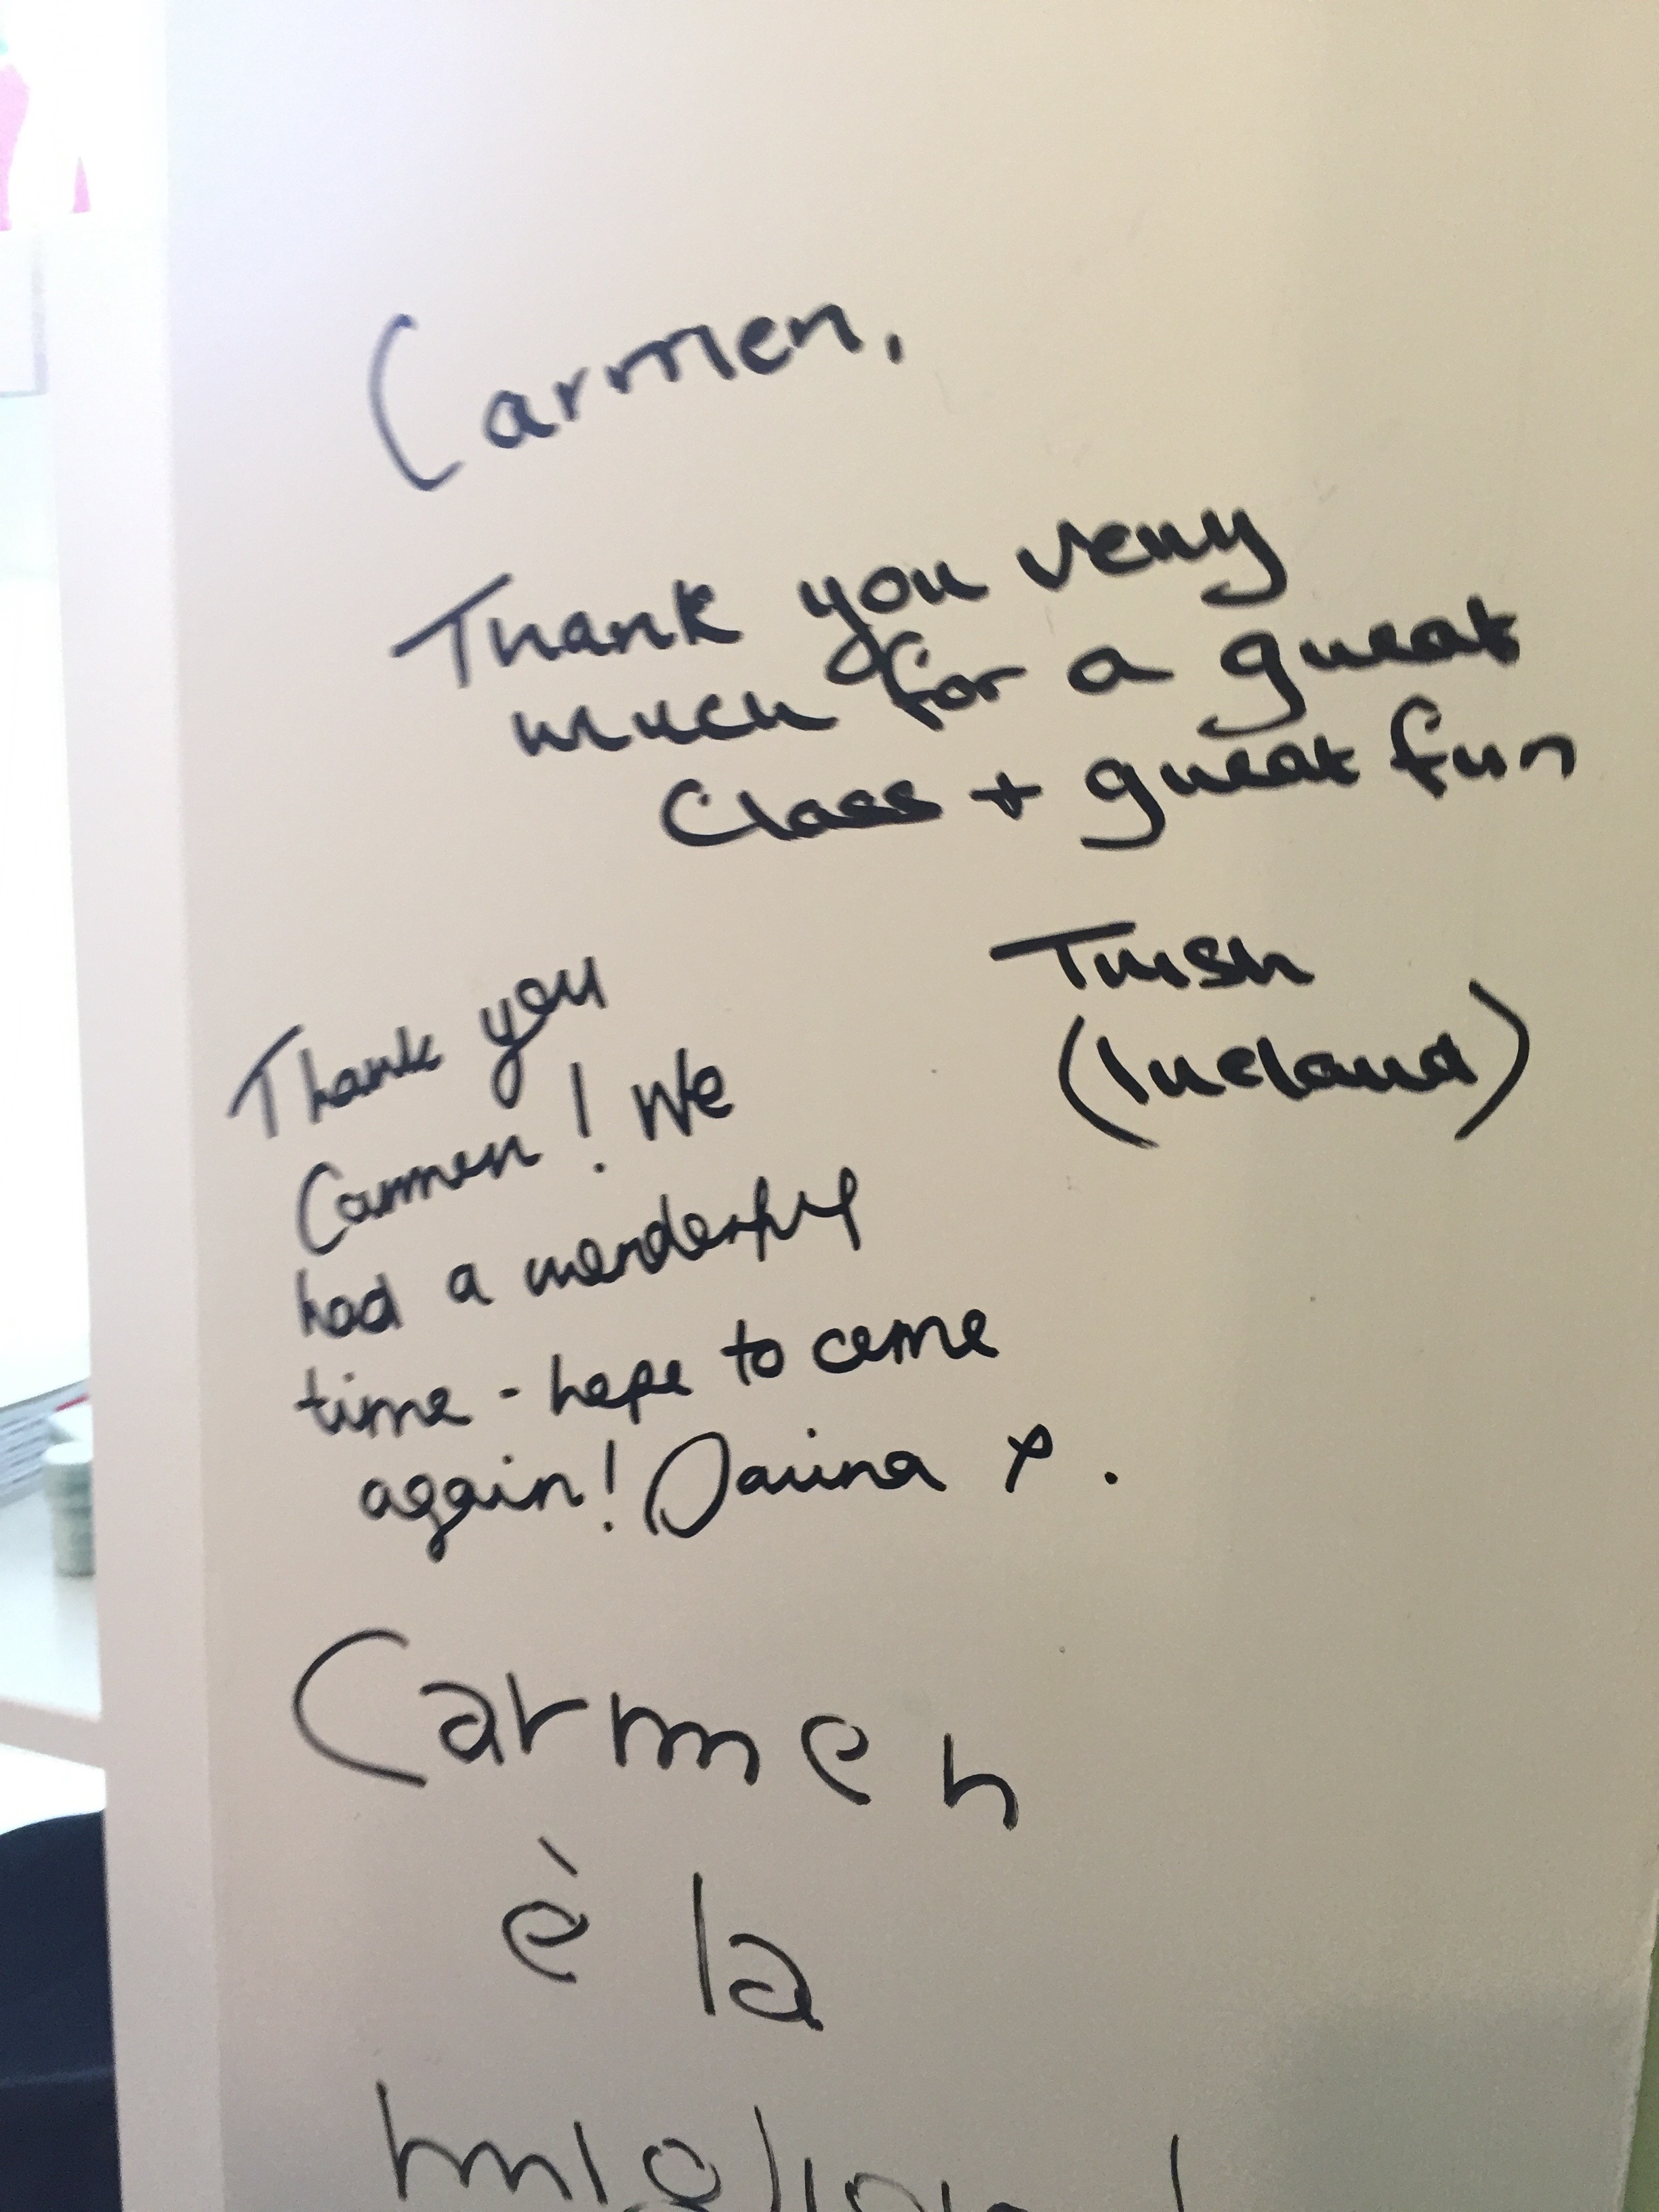 Carmen,
Thank you very
much for a great
Class + great fun
Trish
(Ireland)
Thank you
Carmen! We
had a wonderful
time - hope to come
again! Daiina x.
Carmen
è la
migliore!